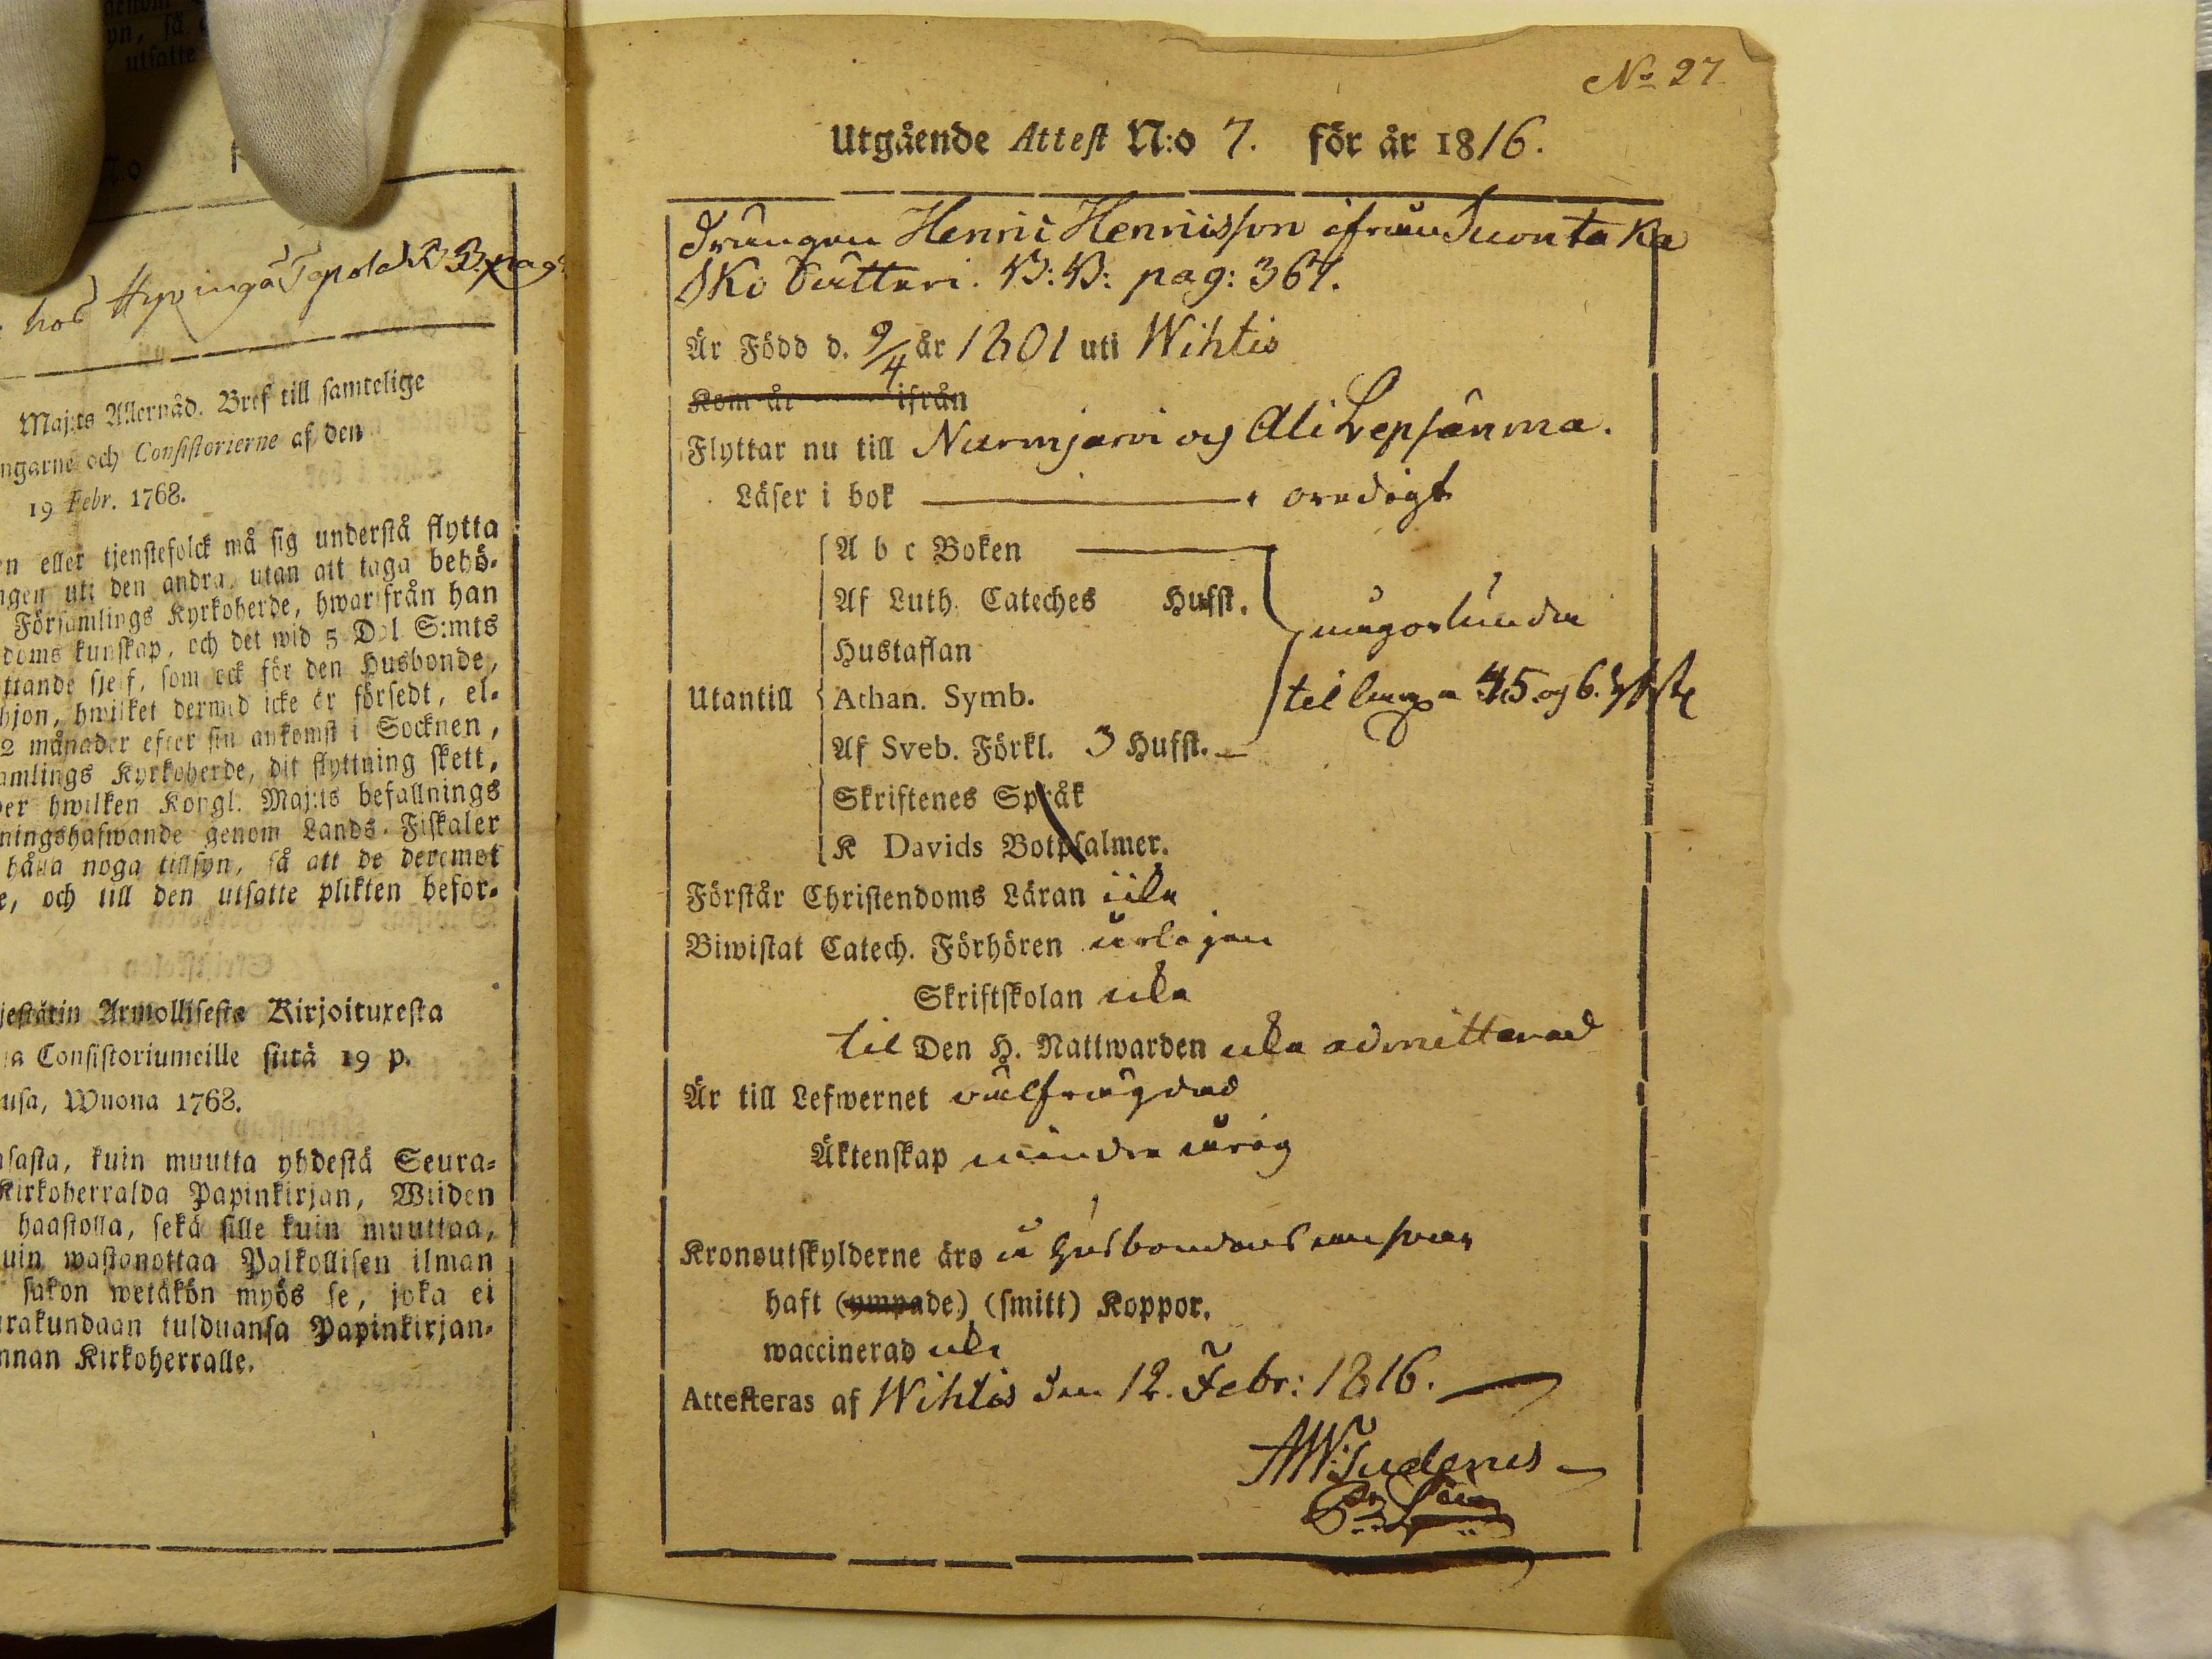 genom
yn, så
utsatte
No
hos Hyvingä Tapola R B. pag:
Maj:ts Allernåd. Bref till samtelige
ngarne och Consistorierne af den
19 Febr. 1768.
n eller tjenstefolck må sig understå flytta
ngen uti den andra, utan att taga behö-
Församlings Kyrkoherde, hwarifrån han
doms kunskap, och det wid 5 Dal. S:mts
ttande sjelf, som ock för den Husbonde,
hjon, hwilket dermed icke är försedt, el-
2 månader efter sin ankomst i Socknen,
amlings Kyrkoherde, dit flyttning skett,
er hwilken Kongl. Maj:ts befallnings
ningshafwande genom Lands-Fiskaler
hålla noga tillsyn, så att de deremot
e, och till den utsatte plikten befor-
jestätin Armollisesta Kirjoituxesta
ja Consistoriumeille siitä 19 p.
usa, Wuona 1768.
sasta, kuin muutta yhdestä Seura-
Kirkoherralda Papinkirjan, Wiiden
haastolla, sekä sille kuin muuttaa,
uin wastanottaa Palkollisen ilman
sakon wetäkön myös se, joka ei
rakundaan tulduansa Papinkirjan-
nnan Kirkoherralle.
No 27
Utgående Attest N:o 7. för år 1816.
Drängen Henric Henricsson ifrån Suontaka
Skö Säteri. B: B: pag: 367.
Är Född d. 9/4 år 1801 uti Wihtis
Kom år ifrån
Flyttar nu till Nurmjärvi och Ali Lepsänmä.
Läser i bok oredigt
A b c Boken
Af Luth. Cateches Hufst.
någorlunda
Hustaflan
Utantill Athan. Symb.
til länge 4, 5 och 6. Hfst
Af Sveb. Förkl. 3 Hufst.
Skriftenes Språk
K Davids Botpsalmer.
Förstår Christendoms Läran illa
Biwistat Catech. Förhören årligen
Skriftskolan icke
til Den H. Nattwarden icke admitterad
Är till Lefwernet välfrägdad
Äktenskap minderårig
Kronoutskylderne äro å Husbondens ansvar
haft (ympade) (smitt) Koppor.
waccinerad icke
Attesteras af Wihtis den 12. Febr: 1816.
AW: Tudenus